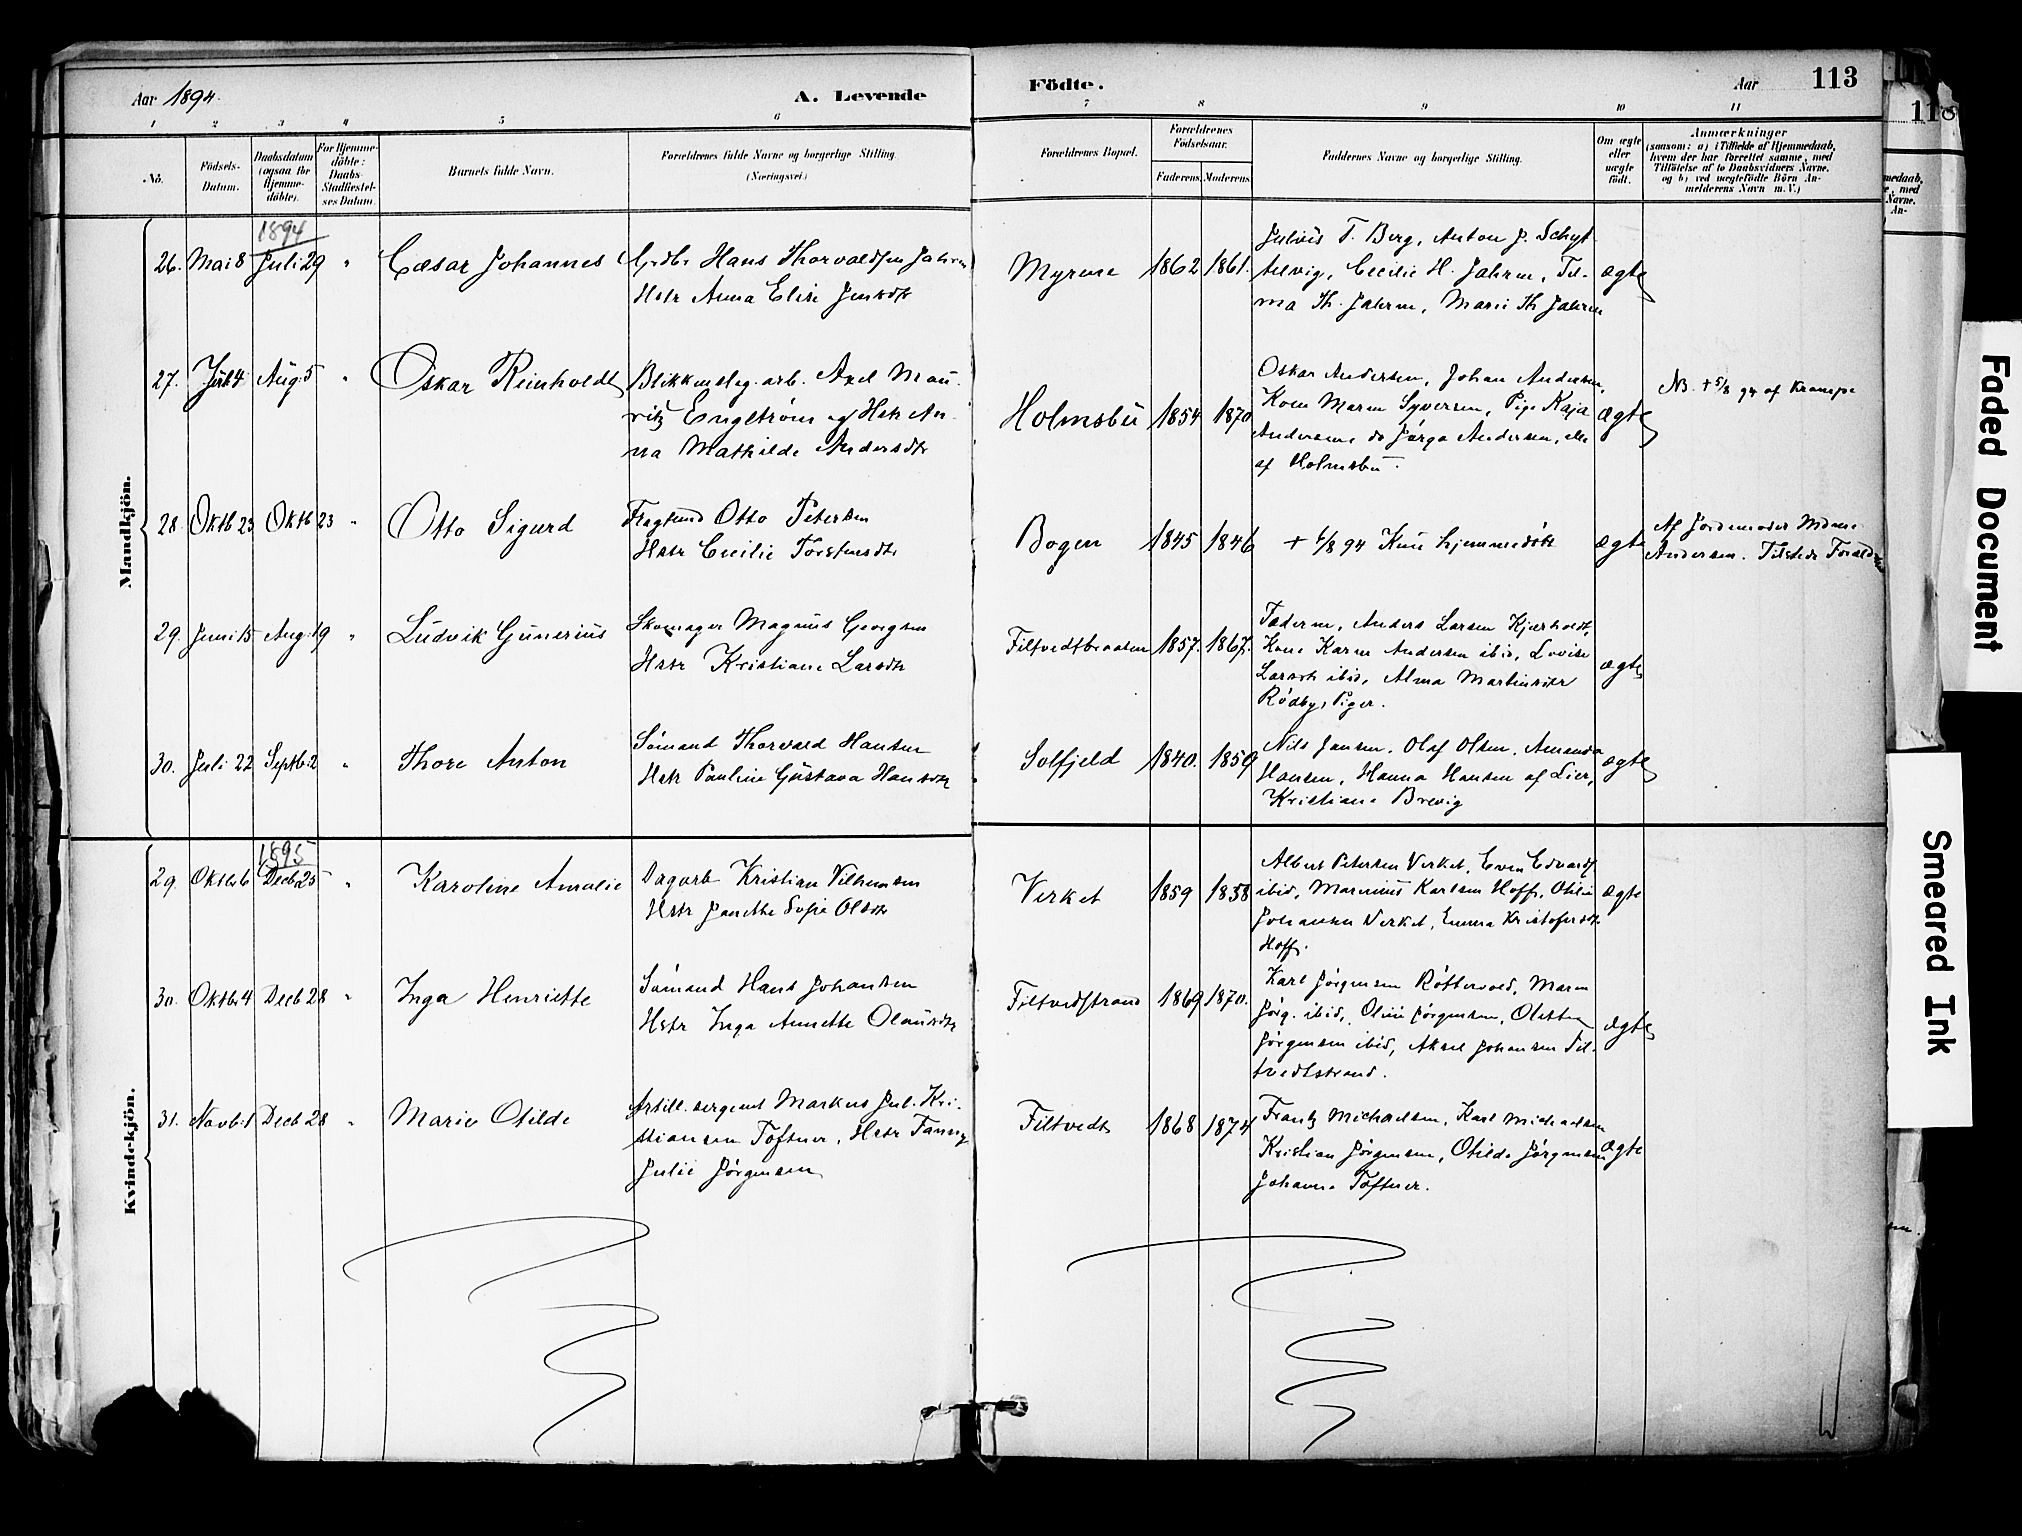 Aar 1894.
A. Levende
Födte.
Aar
113
1 2 3 4 5 6 7 8 9 10 11
No.
Födsels-
Datum.
Daabsdatum
(ogsaa for
Hjemme-
döbte).
For Hjemme-
döbte:
Daabs-
Stadfæstel-
ses Datum.
Barnets fulde Navn.
Forældrenes fulde Navne og borgerlige Stilling.
(Næringsvei.)
Forældrenes Bopæl.
Forældrenes
Födselsaar.
Faderens. Moderens.
Faddernes Navne og borgerlige Stilling.
Om ægte
eller
uægte
födt.
Anmærkninger
(saasom: a) i Tilfælde af Hjemmedaab,
hvem der har forrettet samme, med
Tilföielse af to Daabsvidners Navne.
og b) ved uægtefödte Börn An-
melderens Navn m. V.)
Mandkjön.
1894
26. Mai 8 Juli 29 " Cæsar Johannes
Grdbr Hans Thorvaldsen Jahren
Hstr Anna Elise Jensdtr
Myrene 1862 1861.
Julius T. Berg, Anton J. Schyt
telvig, Cecilie H. Jahren, Til-
ma Th. Jahren, Marie Th Jahren
ægte
27. Juli 4 Aug. 5 " Oskar Reinholdt
Blikkenslag. arb. Axel Mau-
ritz Engström og Hstr An-
na Mathilde Andersdtr
Holmsbu 1854 1870
Oskar Andersen, Johan Andersen,
Kone Maren Syversen, Pige Kaja
Andersen do Jørga Andersen, alle
af Holmsbu.
ægte
NB. + 5/8 94 af Krampe
28. Oktb 23 Oktb 23 " Otto Sigurd
Otto Petersen
Hstr Cecilie Torstensdtr
Bogen 1845 1846
+ 94 Kun hjemmedöbt
ægte
Af Jordemoder
Andersen. Tilstede Forældrene
29. Juni 15 Aug. 19 " Ludvik Gunerius
Skomager Magnus Georgsen
Hstr Kristiane Larsdtr
Filtvedtbraaten 1857. 1867.
Faderen, Anders Larsen Kjærholdt,
Kone Karen Andersen ibid, Lovise
Larsdtr ibid, Alma Martinsdtr
Rødby, Piger.
ægte
30. Juli 22 Septb. 2 " Thore Anton
Sömand Thorvard Hansen
Hstr Pauline Gustava Hansdtr
Solfjeld 1840. 1859
Nils Jansen, Olaf Olsen, Amanda
Hansen, Hanna Hansen af Lier,
Kristiane Brevig
ægte
Kvindekjön.
1895
29. Oktbr 6 Decb 25 " Karoline Amalie
Dagarb Kristian Vilhemsen
Hstr Janette Sofie Olsdtr
Verket 1859 1858
Albert Petersen Verket, Even Edvards
ibid, Marinius Karlsen Hoff, Otilie
Johansen Verket, Emma Kristofersdtr
Hoff.
ægte
30. Oktbr 4 Decb 28 " Inga Henriette
Sömand Hans Johansen
Hstr Inga Annette Olausdtr
Filtvedtstrand 1869 1870.
Karl Jörgensen Röttervold, Maren
Jörg. ibid, Oline Jörgensen, Olette
Jörgensen ibid, Aksel Johansen Fil-
tvedtstrand.
ægte
31. Novb. 1 Decb 28 " Marie Otilde
Artill. sergent Markus Jul. Kri-
stiansen Toftner, Hstr Fanny
Julie Jörgensen
Filtvedt 1868 1874
Frantz Michaelsen, Karl Michaelsen
Kristian Jörgensen, Otilde Jörgensen
Johanne Toftner.
ægte
Faded Document
Smeared Ink